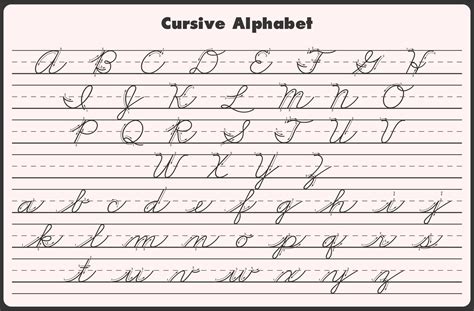 Cursive Alphabet
A B C D E F G H
I J K L M N O
P Q R S T U V
W X Y Z
a b c d e f g h i j
k l m n o p q r s
t u v w x y z